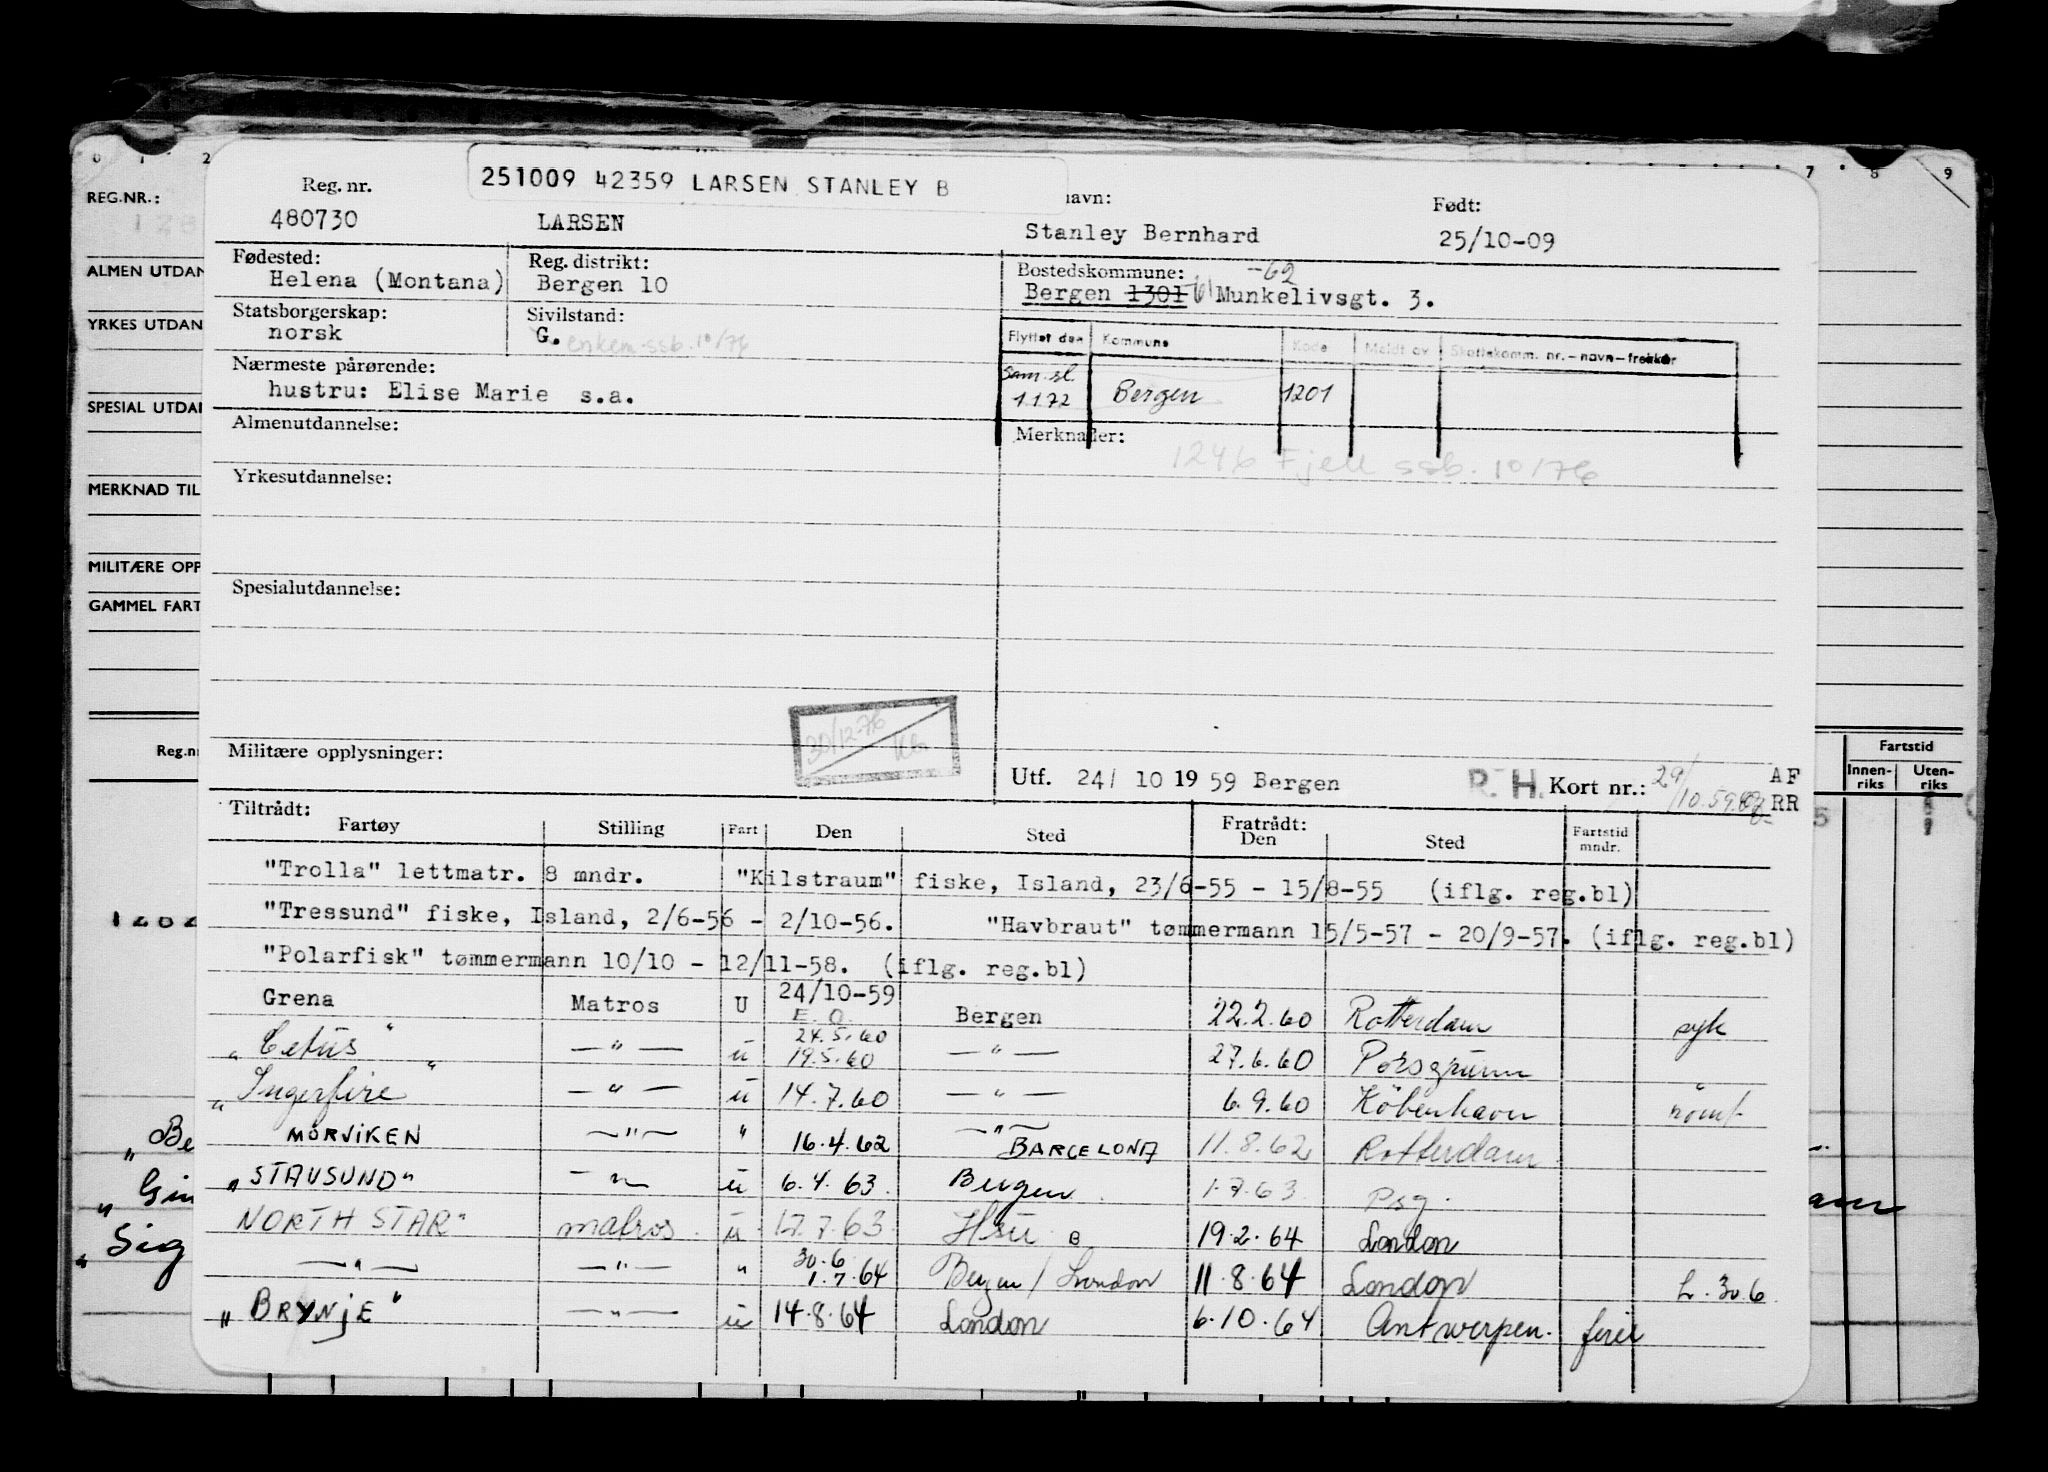 0 1 2 7 8 9
REG.NR.:
ALMEN UTDAN
YRKES UTDAN
SPESIAL UTDAN
MERKNAD TIL
MILITÆRE OPP
GAMMEL FART
Reg.nr
Fartstid
Innen-riks Uten-riks
1202
„ Be
„ Gin
„ Sig
251009 42359 LARSEN STANLEY B
Reg. nr. navn: Født:
480730 LARSEN Stanley Bernhard 25/10-09
Fødested: Reg. distrikt: Bostedskommune: -62
Helena (Montana) Bergen 10 Bergen 1301 61 Munkelivsgt. 3.
Statsborgerskap: Sivilstand:
norsk G. enkem. ssb. 10/76
Flyttet den Kommune Kode Meldt av Skattekomm. nr. - navn - trekkår
Sam. sl.
1.1.72 Bergen 1201
Nærmeste pårørende:
hustru: Elise Marie s.a.
Almenutdannelse: Merknader:
1246 Fjell ssb. 10/76
Yrkesutdannelse:
Spesialutdannelse:
30/12-76
Militære opplysninger: Utf. 24/ 10 1959 Bergen R.H. Kort nr.: 29/10.59 AF RR
Tiltrådt: Fratrådt:
Fartøy Stilling Fart Den Sted Den Sted Fartstid mndr.
"Trolla" lettmatr. 8 mndr. "Kilstraum" fiske, Island, 23/6-55 - 15/8-55 (iflg. reg.bl)
"Tressund" fiske, Island, 2/6-56 - 2/10-56. "Havbraut" tømmermann 15/5-57 - 20/9-57. (iflg. reg.bl)
"Polarfisk" tømmermann 10/10 - 12/11-58. (iflg. reg.bl)
Grena Matros U 24/10-59 E.O. Bergen 22.2.60 Rotterdam syk
„ Cetus " — " — u 24.5.60 19.5.60 — " — 27.6.60 Porsgrunn
„ Ingerfire " — " — u 14.7.60 — " — 6.9.60 København
MORVIKEN — " — " 16.4.62 — " — BARCELONA 11.8.62 Rotterdam
„ STAVSUND " — " — u 6.4.63. Bergen 1.7.63 Psg.
NORTH STAR " matros u 17.7.63. Hsu B 19.2.64 London
— " — — " — " 30.6 1.7.64 Bergen / London 11.8.64 London h. 30.6
„ BRYNJE " — " — u 14.8.64 London 6.10.64 Antwerpen. ferie